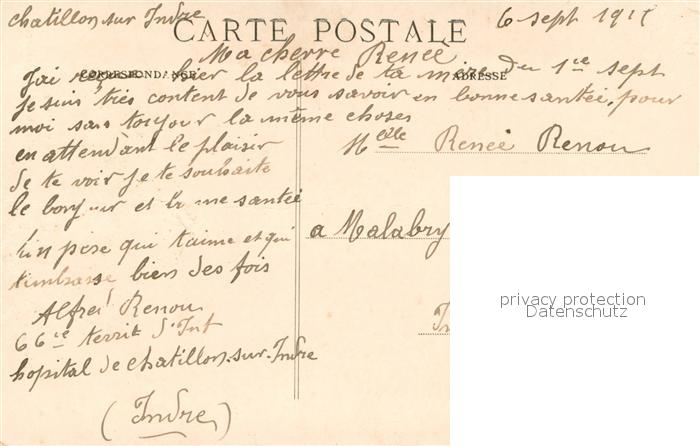 chatillon sur Indre
6 sept 1915
CARTE POSTALE
Ma cherre Renée
CORRESPONDANCE
ADRESSE
J'ai reçue hier la lettre de ta mère du 1re sept
Je suis tres content de vous savoir en bonne santée, pour
moi sans toujour la même choses
en attendant le plaisir
de te voir je te souhaite
le bonjour et bonne santée
Un pere qui taime et qui
tembrasse bien des fois
Alfred Renou
66ie territ d'Inf
hopital de chatillon-sur-Indre
(Indre)
Melle Renée Renou
a Malabry
In
privacy protection
Datenschutz